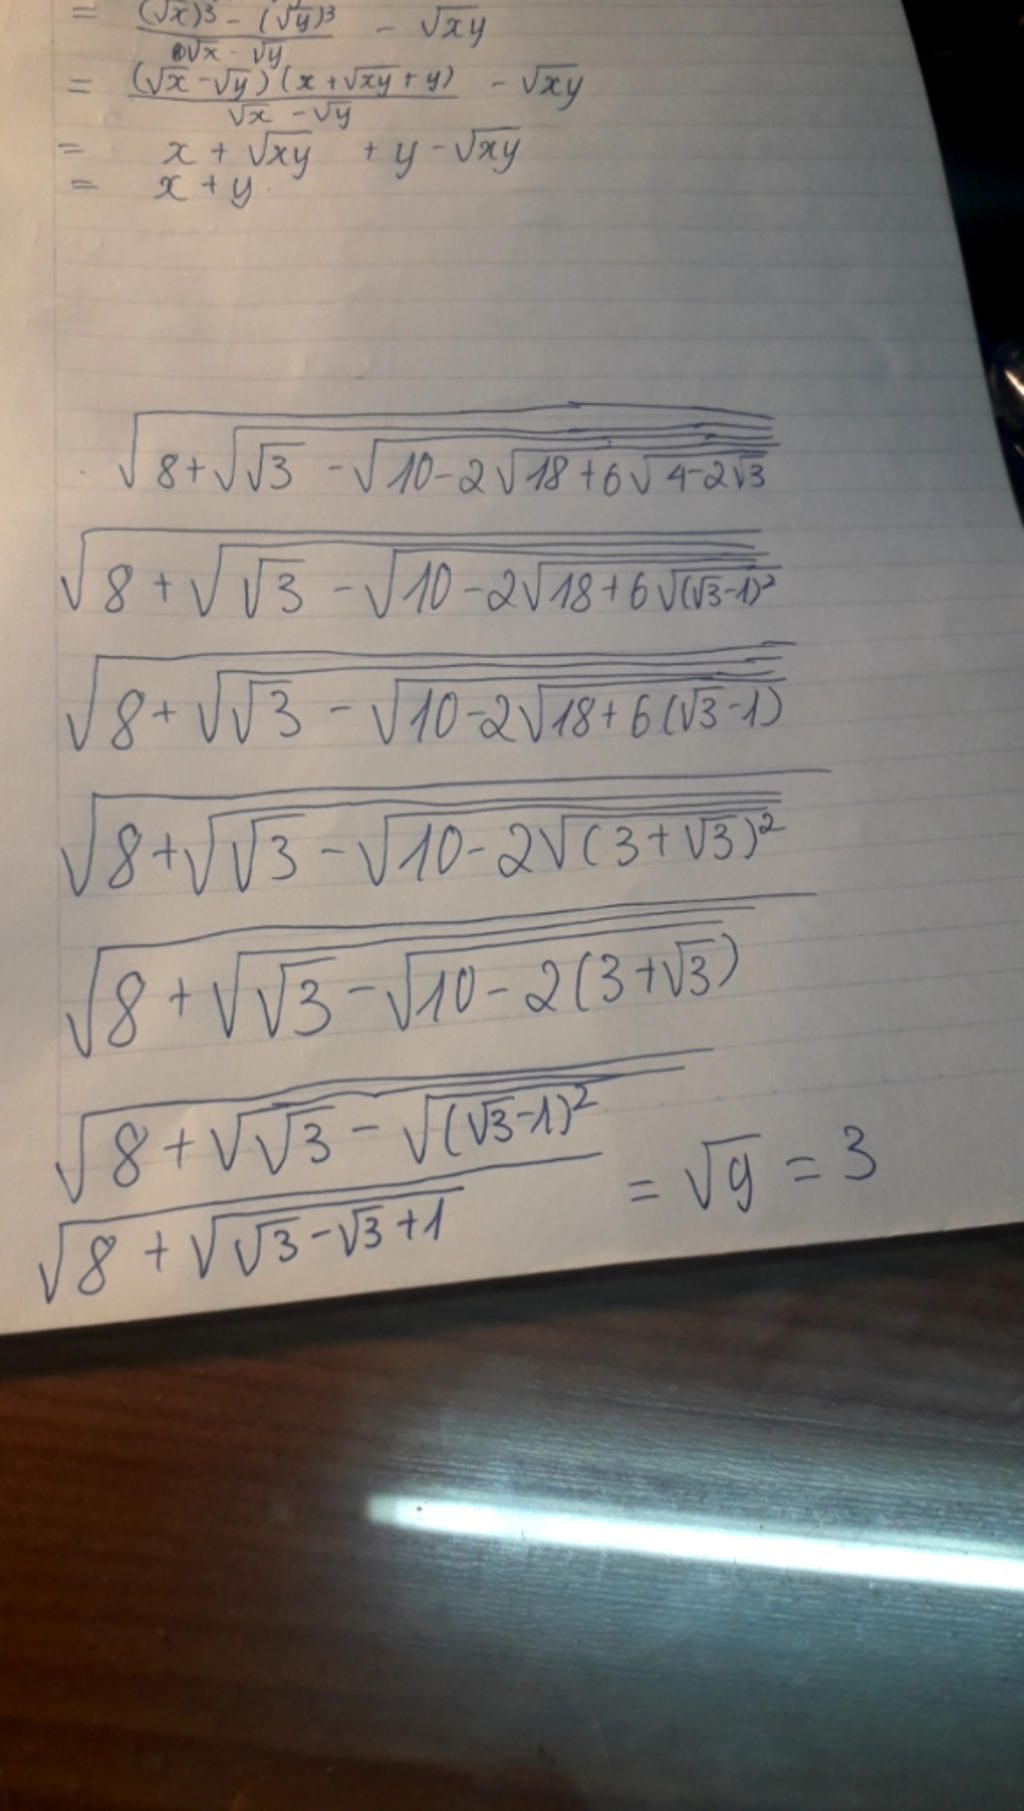 = (√x)³ - (√y)³ / √x - √y - √xy
= (√x - √y)(x + √xy + y) / √x - √y - √xy
= x + √xy + y - √xy
= x + y
√(8 + √(√3 - √(10 - 2√(18 + 6√(4 - 2√3)))))
√(8 + √(√3 - √(10 - 2√(18 + 6√((√3 - 1)²)))))
√(8 + √(√3 - √(10 - 2√(18 + 6(√3 - 1)))))
√(8 + √(√3 - √(10 - 2√((3 + √3)²))))
√(8 + √(√3 - √(10 - 2(3 + √3))))
√(8 + √(√3 - √((√3 - 1)²)))
√(8 + √(√3 - √3 + 1)) = √9 = 3